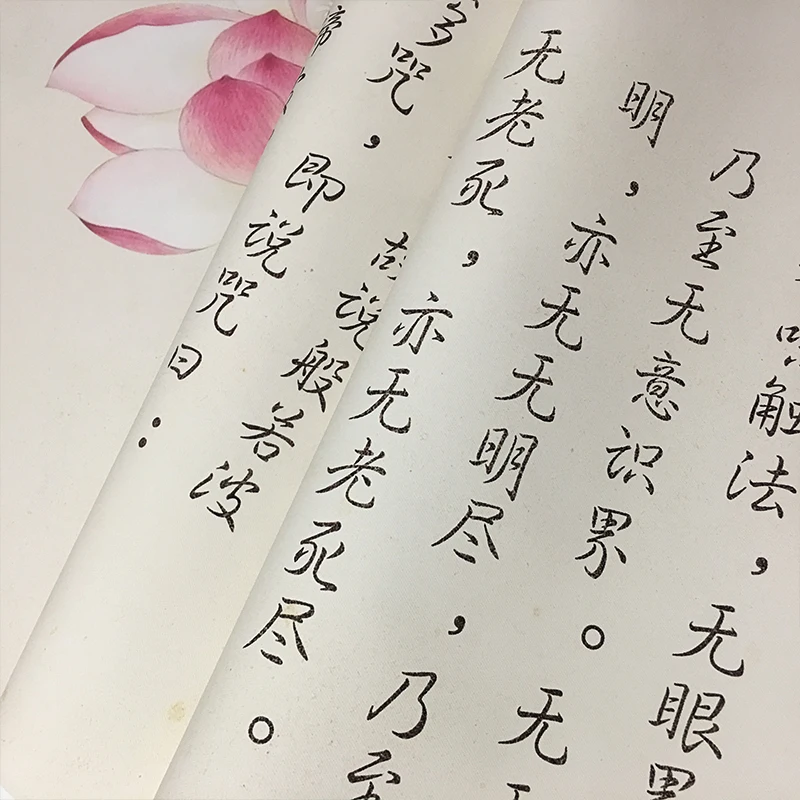 味触法，无眼界
乃至无意识界。无
明，亦无无明尽，乃至
无老死，亦无老死尽。
说般若波
多咒，即说咒曰：